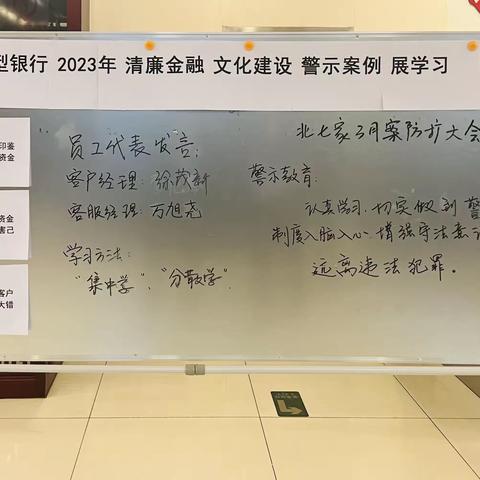 型银行 2023年 清廉金融 文化建设 警示案例 展学习
印鉴
资金
资金
害己
客户
大错
员工代表发言:
客户经理:徐茂新
客服经理:万旭尧
学习方法:
"集中学"、"分散学"。
北七家3月案防扩大会
警示教育:
认真学习、切实做到警
制度入脑入心、增强守法意
远离违法犯罪。